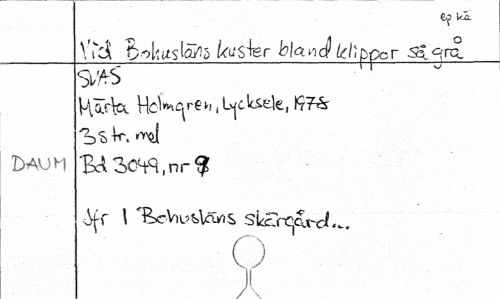 ep kä
Vid Bohusläns kuster bland klippor så grå
SVAS
Märta Holmgren, Lycksele, 1978
3 str. mel
DAUM Bd 3049, nr 9
Jfr I Bohusläns skärgård...